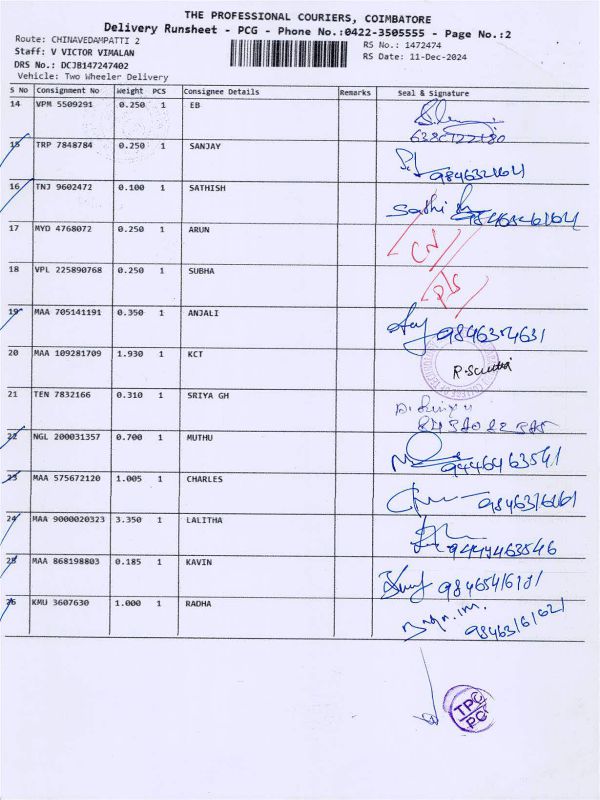 THE PROFESSIONAL COURIERS, COIMBATORE
Delivery Runsheet - PCG - Phone No.:0422-3505555 - Page No.:2
Route: CHINAVEDAMPATTI 2
RS No.: 1472474
Staff: V VICTOR VIMALAN
RS Date: 11-Dec-2024
DRS No.: DCJB147247402
Vehicle: Two Wheeler Delivery
S No Consignment No Weight PCS Consignee Details Remarks Seal & Signature
14 VPM 5509291 0.250 1 EB
15 TRP 7848784 0.250 1 SANJAY
16 TNJ 9602472 0.100 1 SATHISH Sathish
17 MYD 4768072 0.250 1 ARUN
18 VPL 225890768 0.250 1 SUBHA
19 MAA 705141191 0.350 1 ANJALI
20 MAA 109281709 1.930 1 KCT
21 TEN 7832166 0.310 1 SRIYA GH
22 NGL 200031357 0.700 1 MUTHU
23 MAA 575672120 1.005 1 CHARLES
24 MAA 9000020323 3.350 1 LALITHA 9444463546
25 MAA 868198803 0.185 1 KAVIN
26 KMU 3607630 1.000 1 RADHA
TPC
PCG